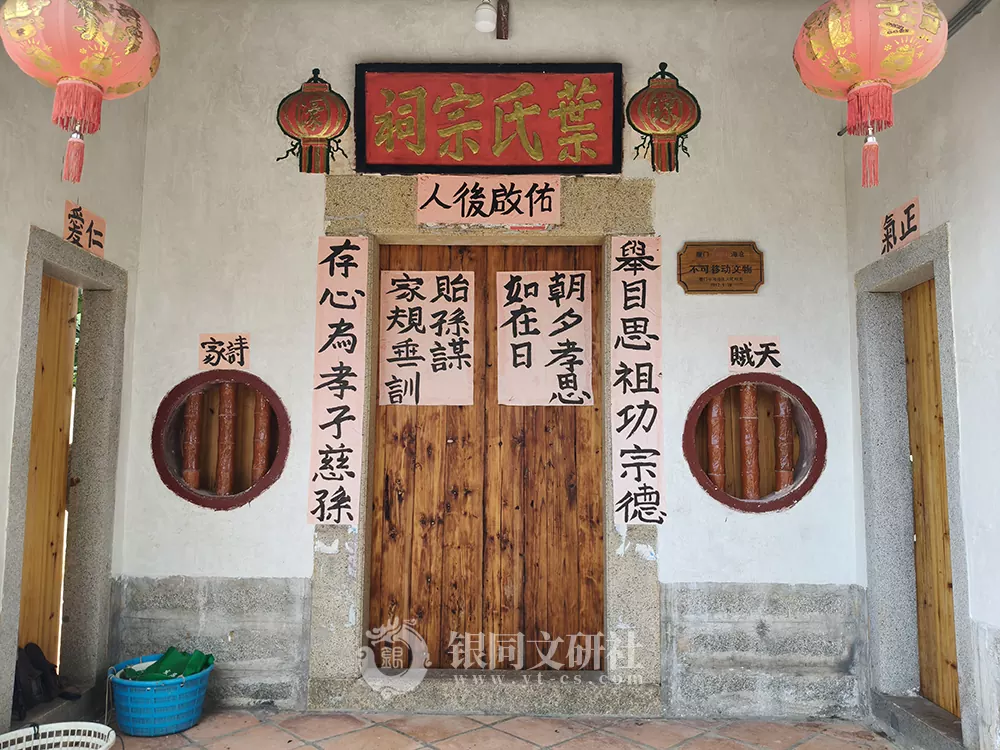 葉氏宗祠
佑啟後人
舉目思祖功宗德
存心為孝子慈孫
朝夕孝思
如在日
貽孫謀
家規垂訓
正氣
仁愛
天賊
詩家
不可移动文物
银同文研社
www.yt-cs.com